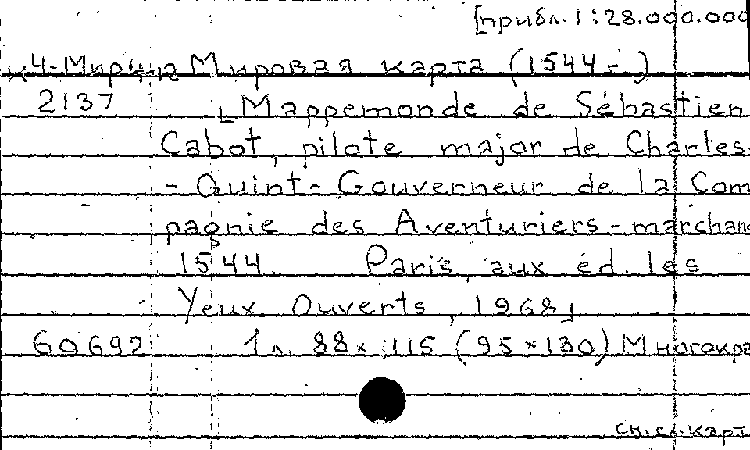 [прибл. 1:28.000.000
Мировая карта (1544-)
2137 [Mappemonde de Sébastien
Cabot, pilote major de Charles-
-Quint-Gouverneur de la Com
pagnie des Aventuriers-marchan
1544. Paris, aux éd. les
Yeux Ouverts, 1968]
60692 1 л. 88×115 (95×130) Многокра
см.сл.карт